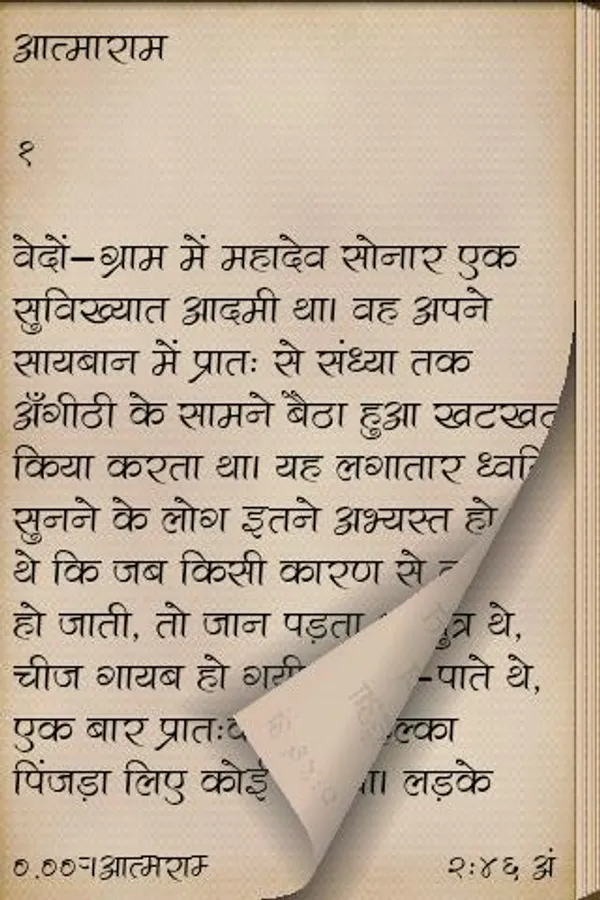 आत्माराम
१
वेदों-ग्राम में महादेव सोनार एक
सुविख्यात आदमी था। वह अपने
सायबान में प्रातः से संध्या तक
अँगीठी के सामने बैठा हुआ खटखट
किया करता था। यह लगातार
सुनने के लोग इतने अभ्यस्त हो
थे कि जब किसी कारण से
हो जाती, तो जान पड़ता थे,
चीज गायब हो गयी -पाते थे,
एक बार
पिंजड़ा लिए कोई लड़के
०.००५आत्मराम
२:४६ अं